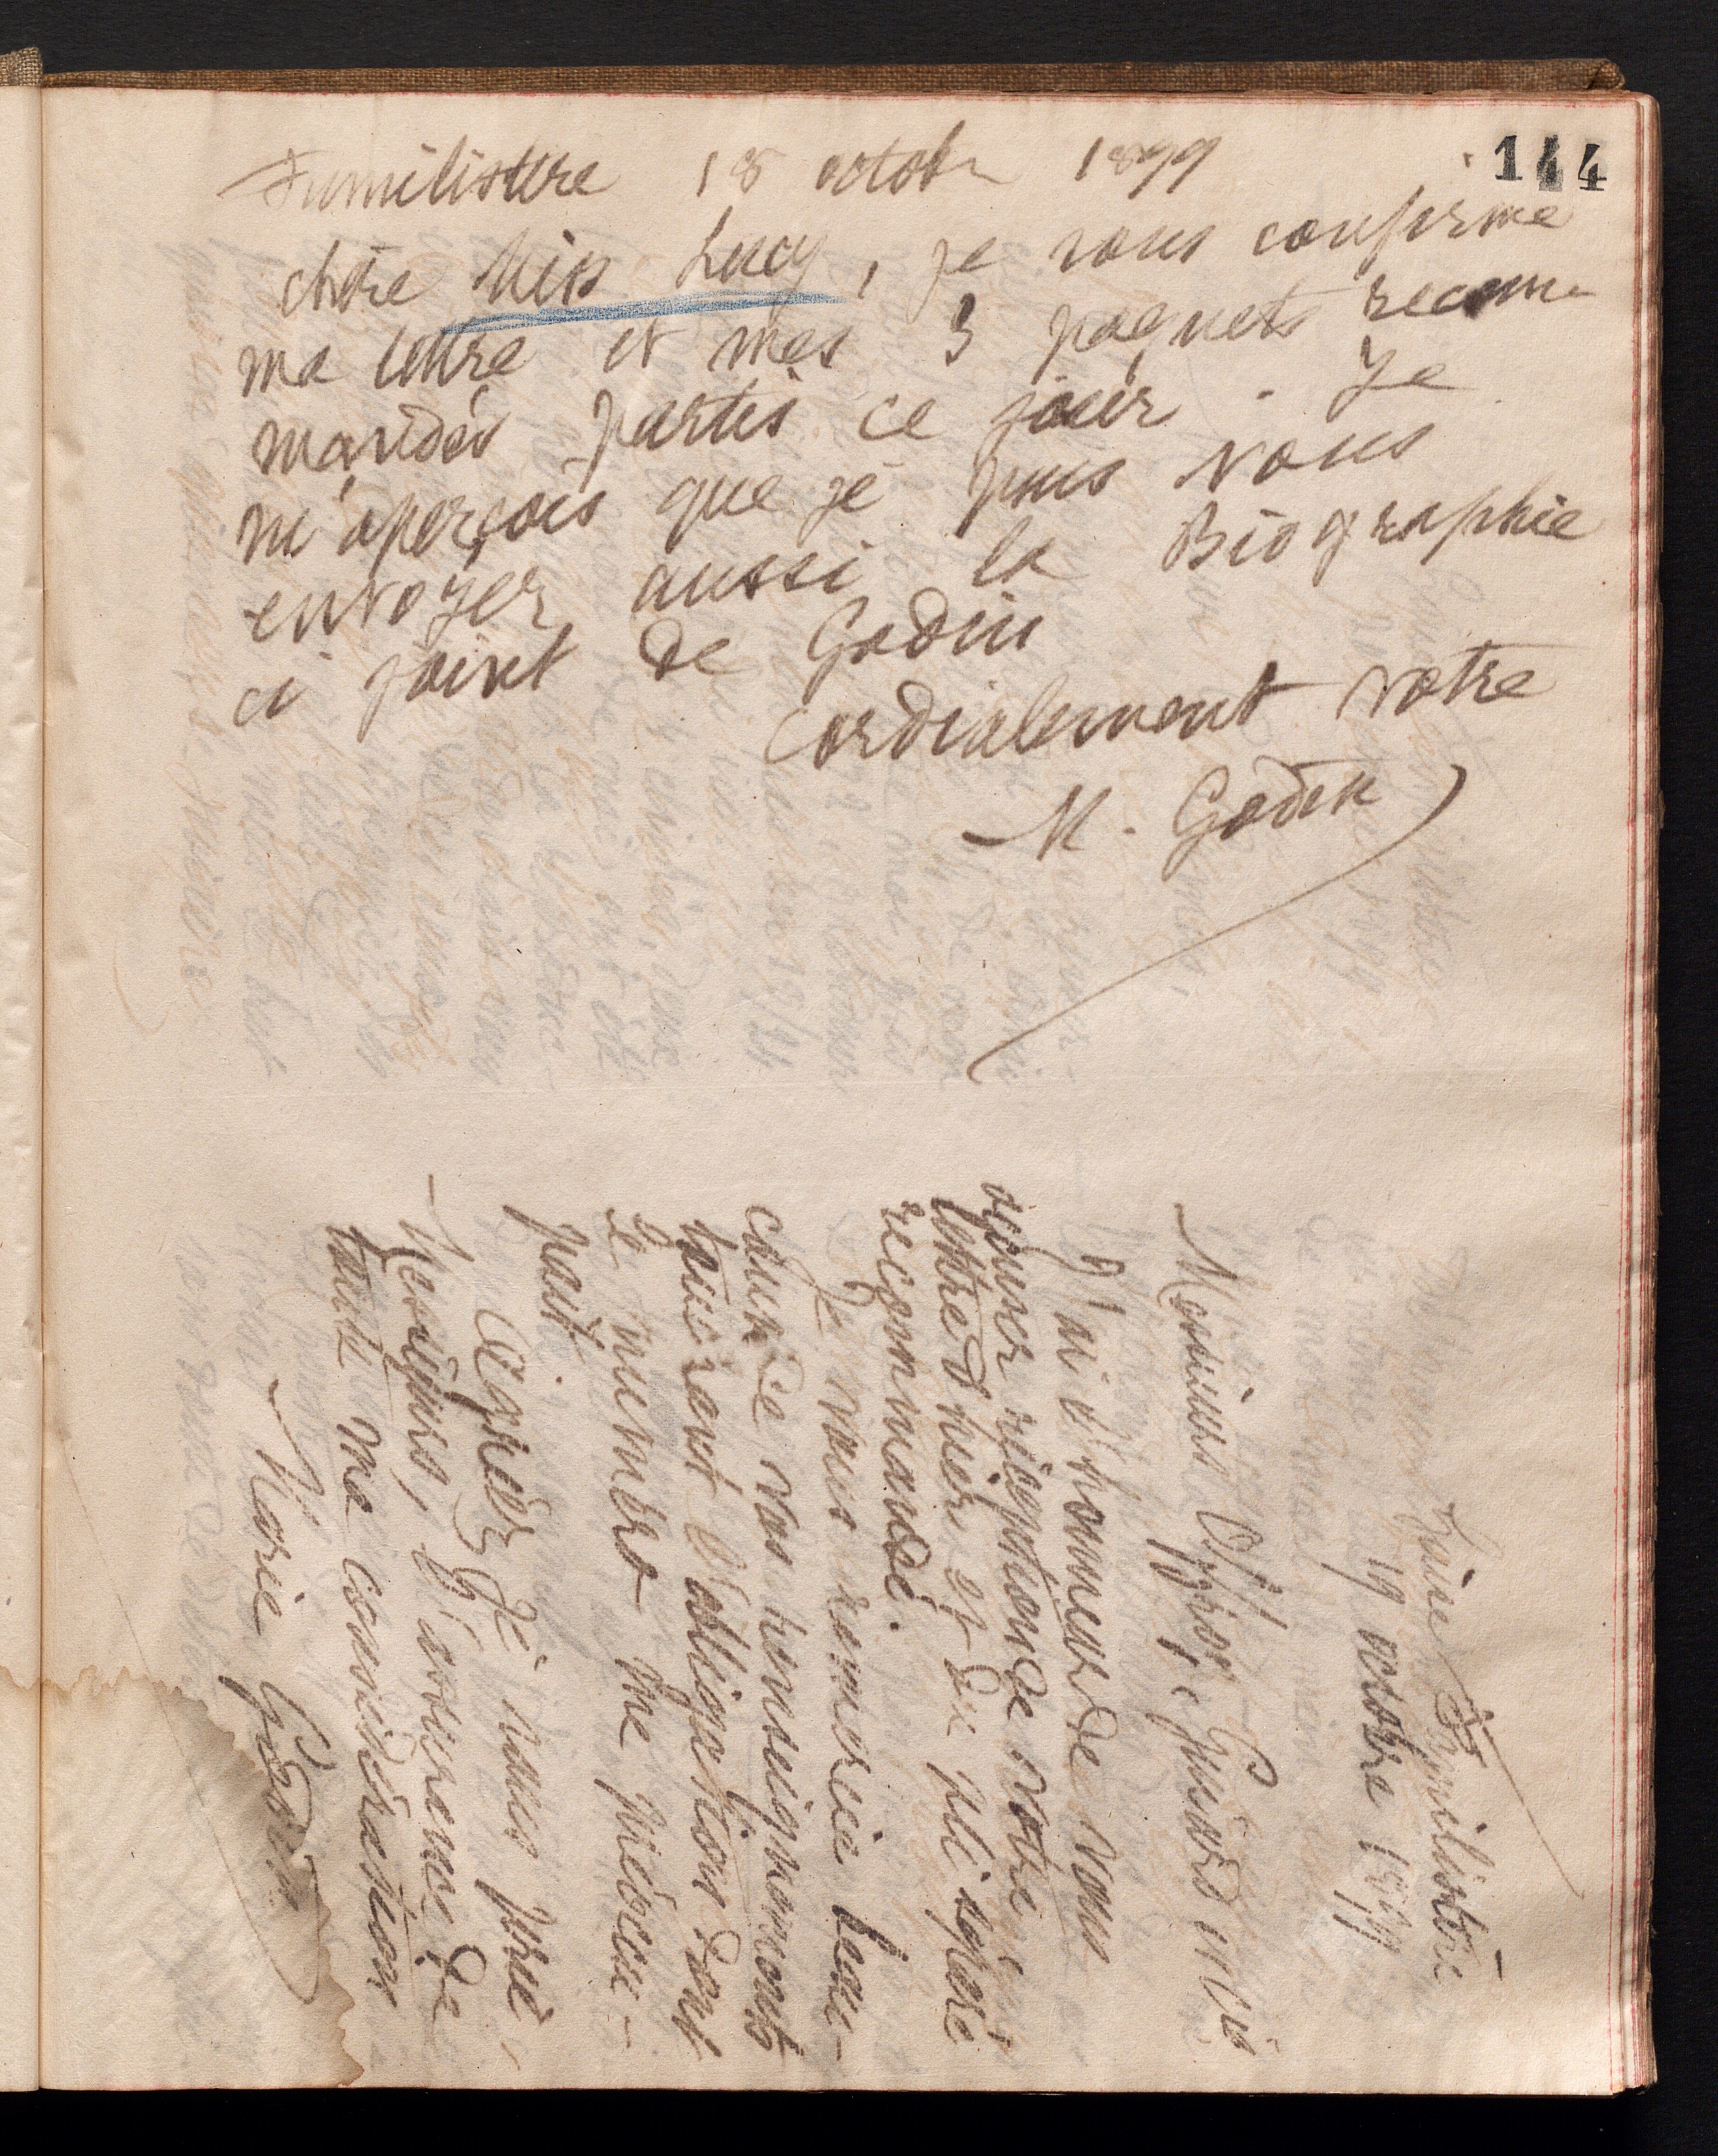 144
Familistère 18 octobre 1899
chère Miss Lucy, je vous confirme
ma lettre et mes 3 paquets recom-
mandés partis ce jour. Je
m'aperçois que je puis vous
envoyer aussi la Biographie
ci joint de Godin
Cordialement votre
M. Godin
Guise Familistère
19 octobre 1899
Messieurs
J'ai l'honneur de vous
accuser réception de votre
lettre d'hier et du pli séparé
recommandé.
Je vous remercie beau-
coup de vos renseignements
touchant l'obligation dont
le numéro me préoccu-
pait.
Agréez je vous prie,
Messieurs, l'assurance de
toute ma considération
Marie Godin